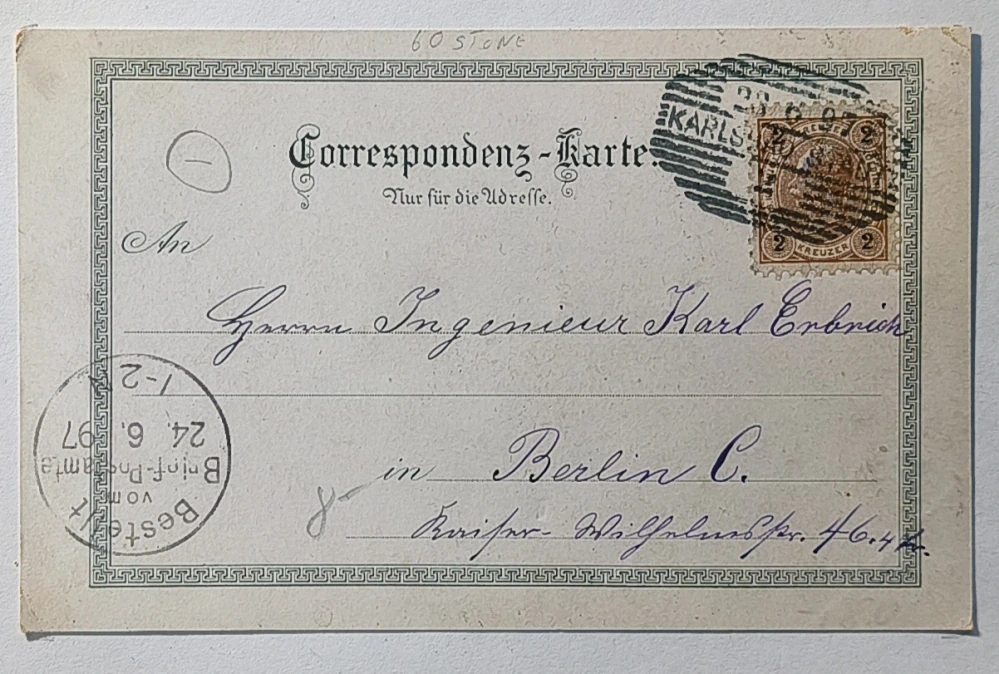 60 STONE
Correspondenz-Karte.
Nur für die Adresse.
An
Herrn Ingenieur Karl Erbrich
in Berlin C.
Kaiser-Wilhelmstr. 46.
8-
KARLS
2 2
2 KREUZER 2
Bestellt
vom
Brief-Postamte
24. 6. 97
1-2